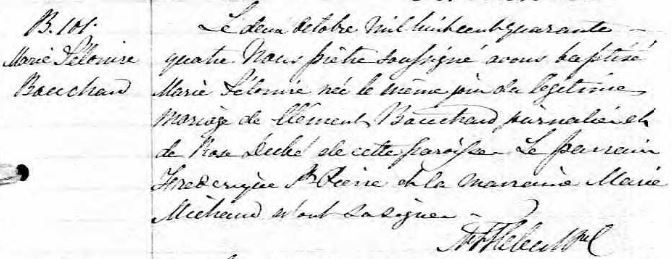 B. 101.
Marie Célonire
Bouchard
Le deux octobre mil huit cent quarante
quatre Nous prêtre soussigné avons baptisé
Marie Célonire née le même jour du légitime
mariage de Clément Bouchard journalier et
de Rose Dubé de cette paroisse Le parrain
Frederique St Pierre et la marraine Marie
Michaud n'ont su signer -